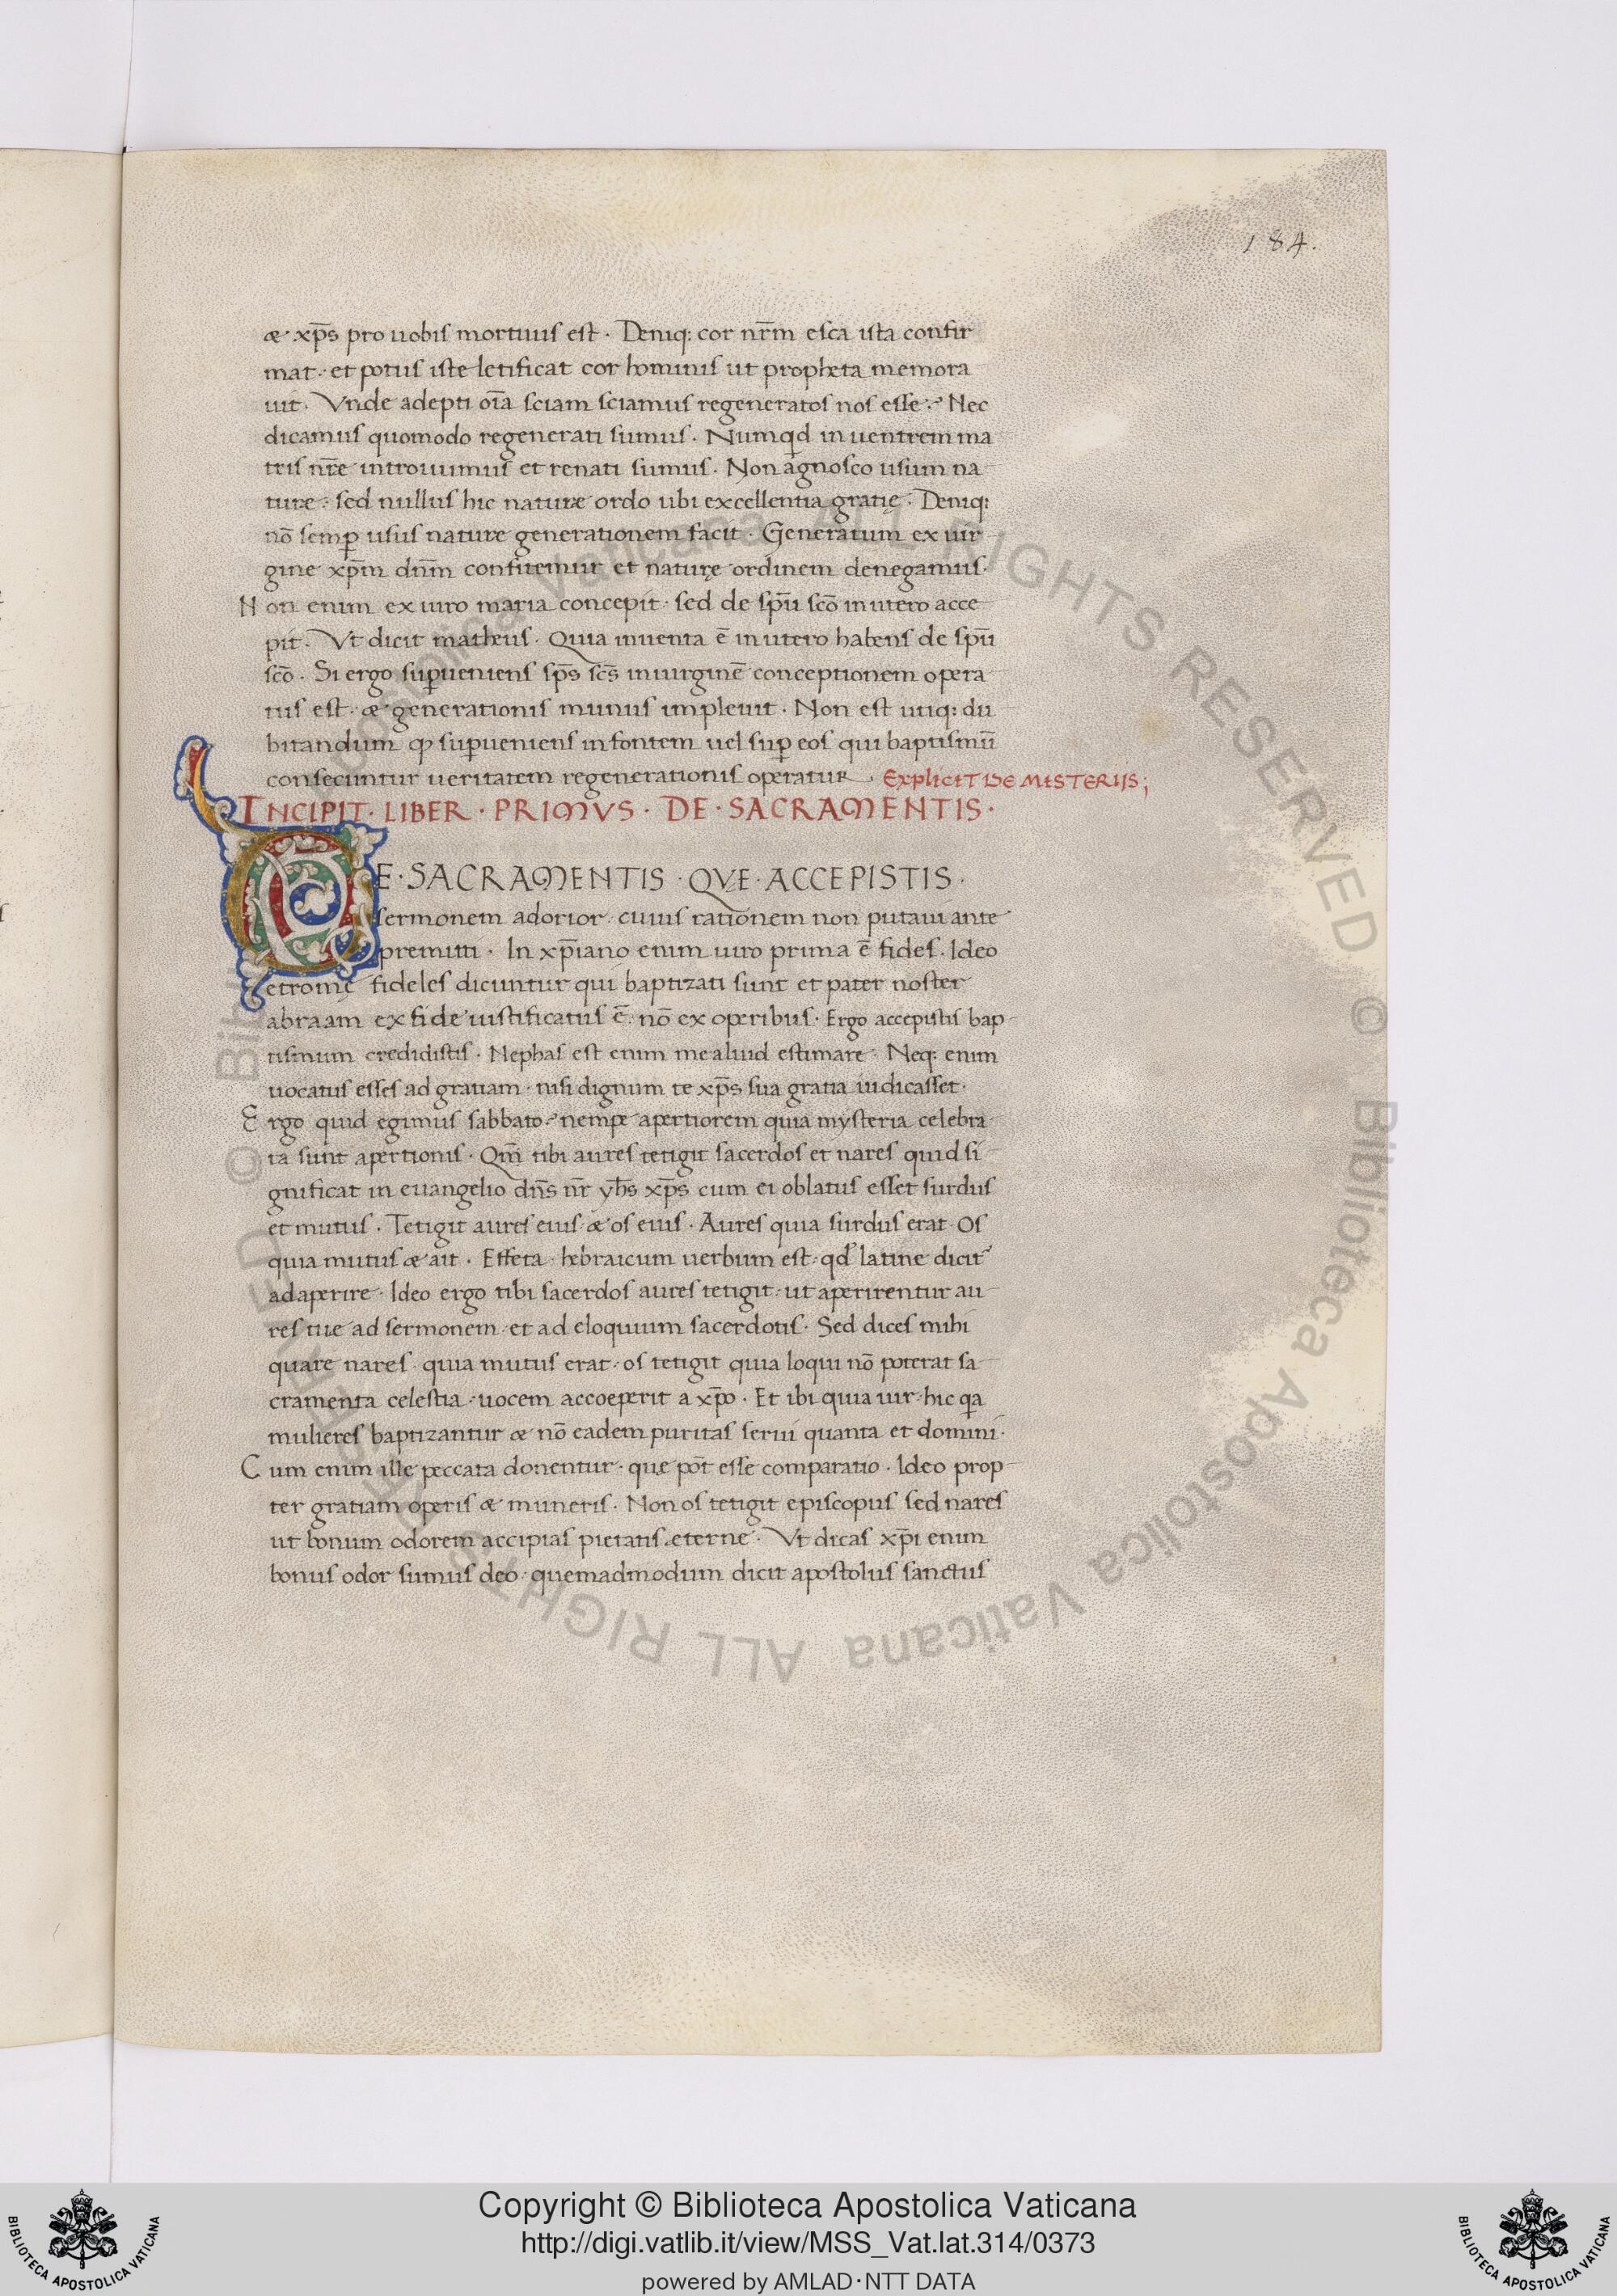 184.
æ xp̄s pro uobis mortuus est · Deniq; cor nr̄m esca ista confir
mat · et potus iste letificat cor hominis ut propheta memora
uit · Vnde adepti oīa sciam sciamus regeneratos nos esse · Nec
dicamus quomodo regenerati sumus · Numqd in uentrem ma
tris nr̄e introiuimus et renati sumus · Non agnosco usum na
ture · sed nullus hic naturæ ordo ubi excellentia gratię · Deniq;
nō semp̱ usus nature generationem facit · Generatum ex uir
gine xp̄m dnm̄ confitemur et naturę ordinem denegamus ·
Non enim ex uiro maria concepit · sed de spū scō in utero acce
pit · Vt dicit matheus · Quia inuenta ē in utero habens de spū
scō · Si ergo sup̱ueniens sp̄s sc̄s in uirginē conceptionem opera
tus est · æ generationis munus impleuit · Non est utiq; du
bitandum ꝙ sup̱ueniens in fontem uel sup̱ eos qui baptismū
consecuntur ueritatem regenerationis operatur · Explicit DE MISTERIJS;
INCIPIT · LIBER · PRIMVS · DE · SACRAMENTIS ·
DE · SACRAMENTIS · QVE · ACCEPISTIS ·
sermonem adorior · cuius rationem non putaui ante
premitti · In xp̄iano enim uiro prima ē fides · Ideo
et romę fideles dicuntur qui baptizati sunt et pater noster
abraam ex fide iustificatus ē · nō ex operibus · Ergo accepistis bap
tismum credidistis · Nephas est enim me aliud estimare · Neq; enim
uocatus esses ad gratiam · nisi dignum te xp̄s sua gratia iudicasset ·
Ergo quid egimus sabbato · nempe apertiorem quia mysteria celebra
ta sunt apertionis · Qm̄ tibi aures tetigit sacerdos et nares quid si
gnificat in euangelio dn̄s nr̄ yh̄s xp̄s cum ei oblatus esset surdus
et mutus · Tetigit aures eius æ os eius · Aures quia surdus erat · Os
quia mutus æ ait · Effeta · hebraicum uerbum est · qd latine dicit᷒
adaperire · Ideo ergo tibi sacerdos aures tetigit · ut aperirentur au
res tue ad sermonem · et ad eloquium sacerdotis · Sed dices mihi
quare nares · quia mutus erat · os tetigit quia loqui nō poterat sa
cramenta celestia · uocem accoeperit a xp̄o · Et ibi quia uir · hic qa
mulieres baptizantur æ nō eadem puritas serui quanta et domini ·
Cum enim ille peccata donentur · quæ pōt esse comparatio · Ideo prop
ter gratiam operis æ muneris · Non os tetigit episcopus sed nares
ut bonum odorem accipias pietatis æterne · Vt dicas xp̄i enim
bonus odor sumus deo · quemadmodum dicit apostolus sanctus
© Biblioteca Apostolica Vaticana ALL RIGHTS RESERVED © Biblioteca Apostolica Vaticana ALL RIGHTS RESERVED
BIBLIOTECA APOSTOLICA VATICANA
Copyright © Biblioteca Apostolica Vaticana
http://digi.vatlib.it/view/MSS_Vat.lat.314/0373
powered by AMLAD·NTT DATA
BIBLIOTECA APOSTOLICA VATICANA